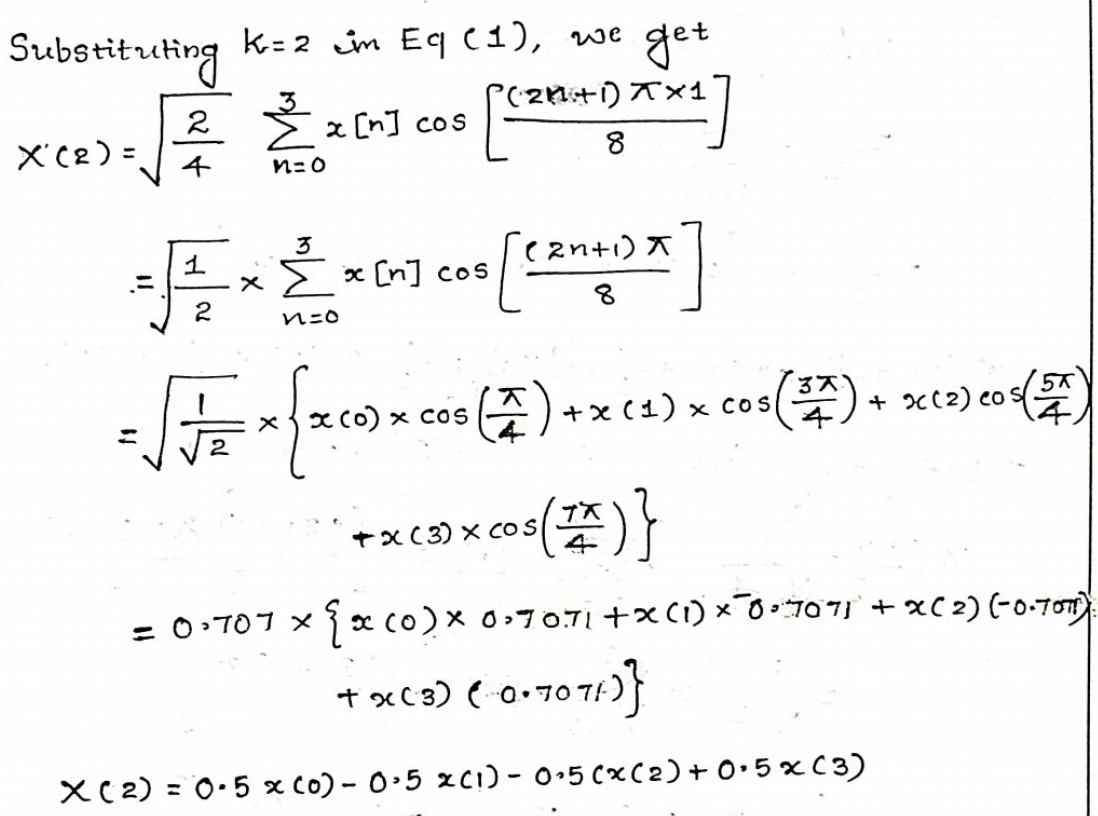 Substituting K=2 in Eq (1), we get
X(2) = √(2/4) ∑_{n=0}^{3} x[n] cos [(2n+1)π×1 / 8]
= √(1/2) × ∑_{n=0}^{3} x[n] cos [(2n+1)π / 8]
= √(1/√2) × { x(0) × cos(π/4) + x(1) × cos(3π/4) + x(2) cos(5π/4)
+ x(3) × cos(7π/4) }
= 0.707 × { x(0) × 0.7071 + x(1) × -0.7071 + x(2) (-0.7071)
+ x(3) (-0.7071) }
X(2) = 0.5 x(0) - 0.5 x(1) - 0.5(x(2) + 0.5 x(3)